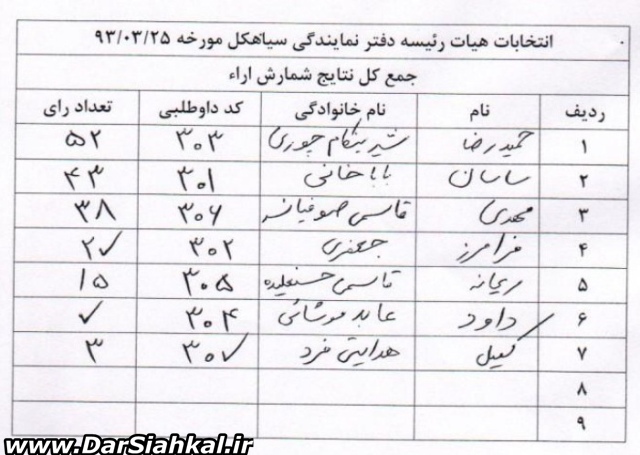 انتخابات هیات رئیسه دفتر نمایندگی سیاهکل مورخه ۹۳/۰۳/۲۵
جمع کل نتایج شمارش اراء
ردیف نام نام خانوادگی کد داوطلبی تعداد رای
۱ حمیدرضا شیرینکام چوری ۳۰۳ ۵۲
۲ ساسان باباخانی ۳۰۱ ۴۳
۳ مهدی قاسمی صوفیانه ۳۰۶ ۳۸
۴ فرامرز جعفری ۳۰۲ ۲۷
۵ ریحانه قاسمی ۳۰۵ ۱۵
۶ داود عابد موشائی ۳۰۴ ۷
۷ کمیل هدایتی فرد ۳۰۷ ۳
۸
۹
www.DarSiahkal.ir